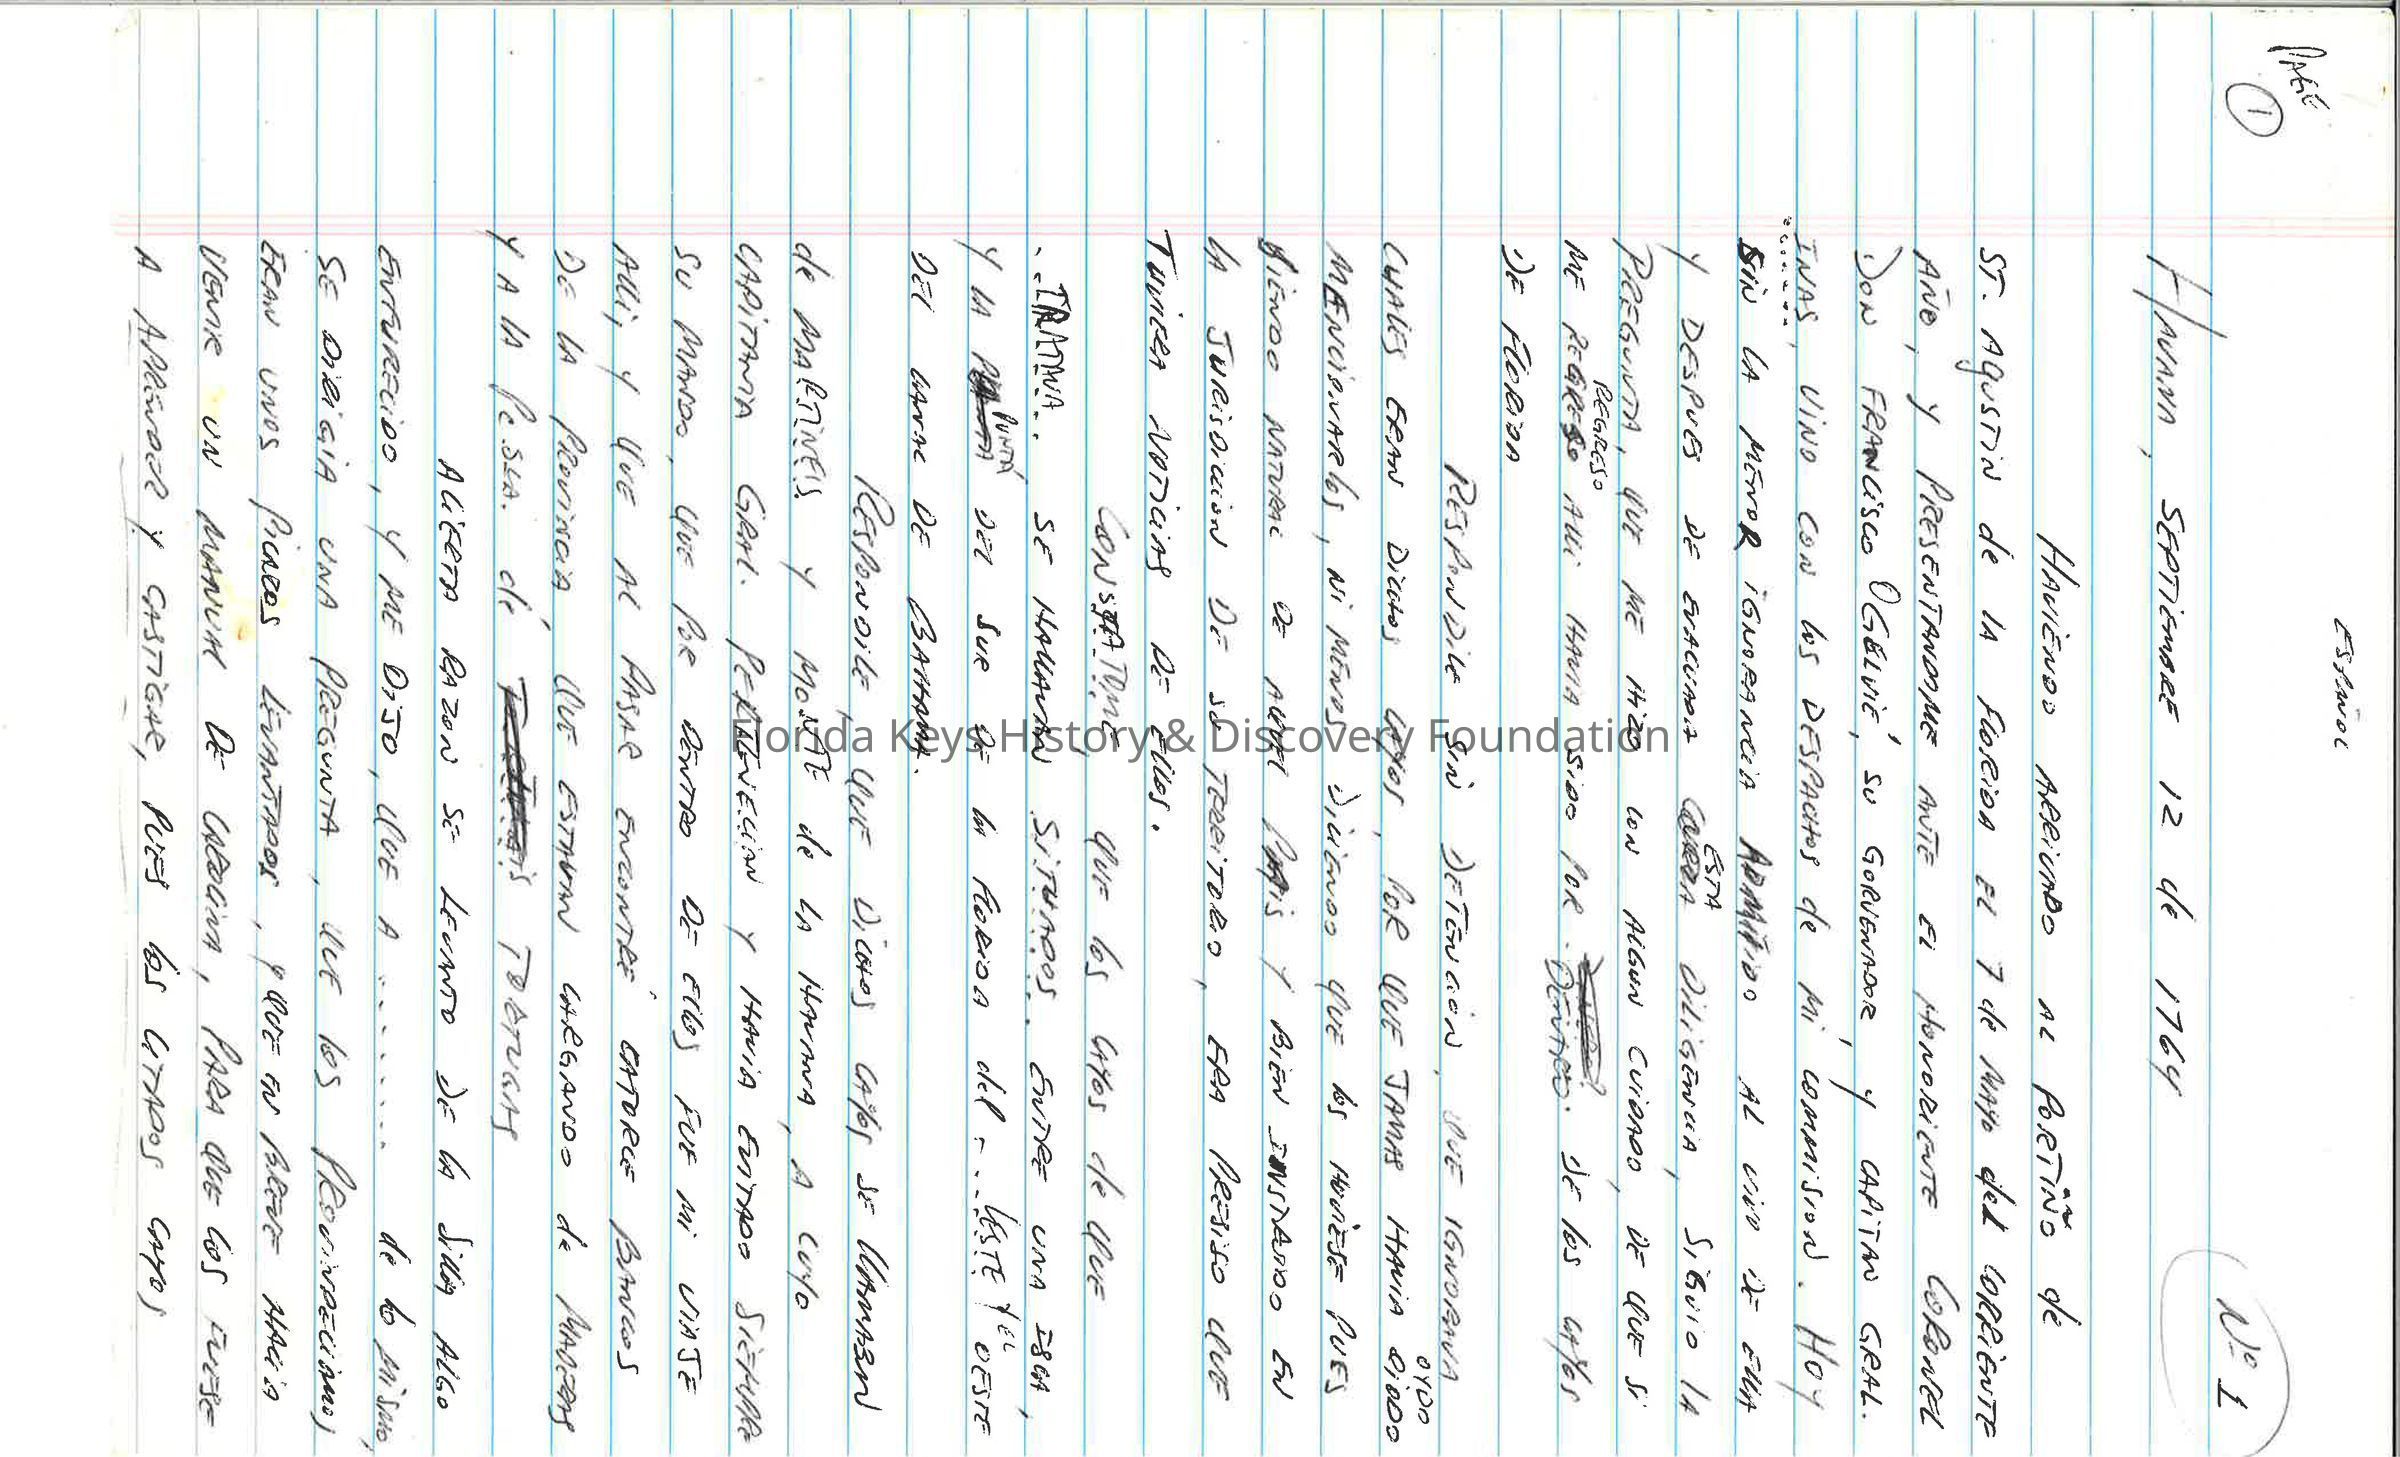 PAGE
①
ESPAÑOL
Nº 1
HAVANA, SEPTIEMBRE 12 de 1764
HAVIENDO ARRIVADO AL PORTIÑO de
ST. AGUSTIN de LA FLORIDA El 7 de MAYO del CORRIENTE
AÑO, Y PRESENTANDOME ANTE El HONORIENTE CORONEL
DON FRANCISCO OGELVIE, SU GORVENADOR Y CAPITAN GRAL.
INAS, VINO CON los DESPACHOS de MI COMMISION. HOY
SIN LA MENOR IGNORANCIA ADMITIDO AL UNO DE ELLA
Y DESPUES DE EVACUADA ESTA DILIGENCIA, SIGUIO LA
PREGUNTA, QUE ME HIZO CON ALGUN CUIDADO, DE QUE SI
REGRESO
ME REGRESO ALLI HAVIA SIDO POR DENTRO. DE los CAYOS
DE FLORIDA
RESPONDILE SIN DETENCION, QUE IGNORAVA
OYDO
CUALES ERAN DICHOS CAYOS, POR QUE JAMAS HAVIA OIDDO
MENCIONARLOS, NI MENOS DICIENDO QUE los HUVIESE PUES
SIENDO NATURAL DE AQUEL PAIS Y BIEN INSTRADO EN
LA JURISDICCION DE SU TERRITORIO, ERA PRESISO QUE
TUVIERA NOTICIAS DE Ellos.
CONSTATOME, QUE los CAYOS de QUE
..TRATAVA.. SE HALLAVAN SITUADOS, ENTRE UNA ISLA,
Y LA PUNTA DEL SUR DE LA FLORIDA del ... LESTE Y EL OESTE
DEL CANAL DE BAHAMA.
RESPONDILE, QUE DICHOS CAYOS SE LLAMABEN
de MARTINES Y MONTE de LA HAVANA, A CUYO
CAPITANIA GRAL. PERTENECIAN Y HAVIA EVITADO SIEMPRE
SU MANDO, QUE POR DENTRO DE Ellos FUE MI VIAJE
Alli, Y QUE AL PASAR ENCONTRÉ CATORCE BARCOS
DE LA PROVINCIA QUE ESTAVAN CARGANDO de MADERAS
Y A LA PESCA. dé TORTUGAS
ALIERTA RAZON SE LEVANTO DE LA SILLA ALGO
ENFURECIDO, Y ME DIJO, QUE A ....... de lo MISMO,
SE DIRIGIA UNA PREGUNTA, QUE los
ERAN UNOS PICAROS LEVANTADOS, Y QUE EN BREVE HACIA
VENIR UN MANUAL DE CAROLINA, PARA QUE LOS FUESE
A APRENDER Y CASTIGAR, PUES los CITADOS CAYOS
Florida Keys History & Discovery Foundation